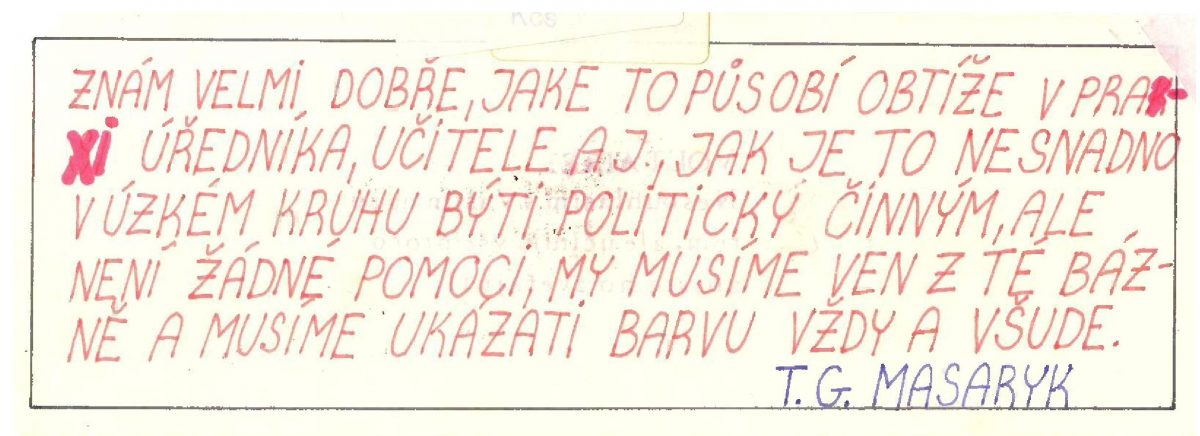 Kčs
ZNÁM VELMI DOBŘE, JAKE TO PŮSOBÍ OBTÍŽE V PRA-
XI ÚŘEDNÍKA, UČITELE A J., JAK JE TO NESNADNO
V ÚZKÉM KRUHU BÝTI POLITICKÝ ČINNÝM, ALE
NENÍ ŽÁDNÉ POMOCI, MY MUSÍME VEN Z TÉ BÁZ-
NĚ A MUSÍME UKÁZATI BARVU VŽDY A VŠUDE.
T. G. MASARYK